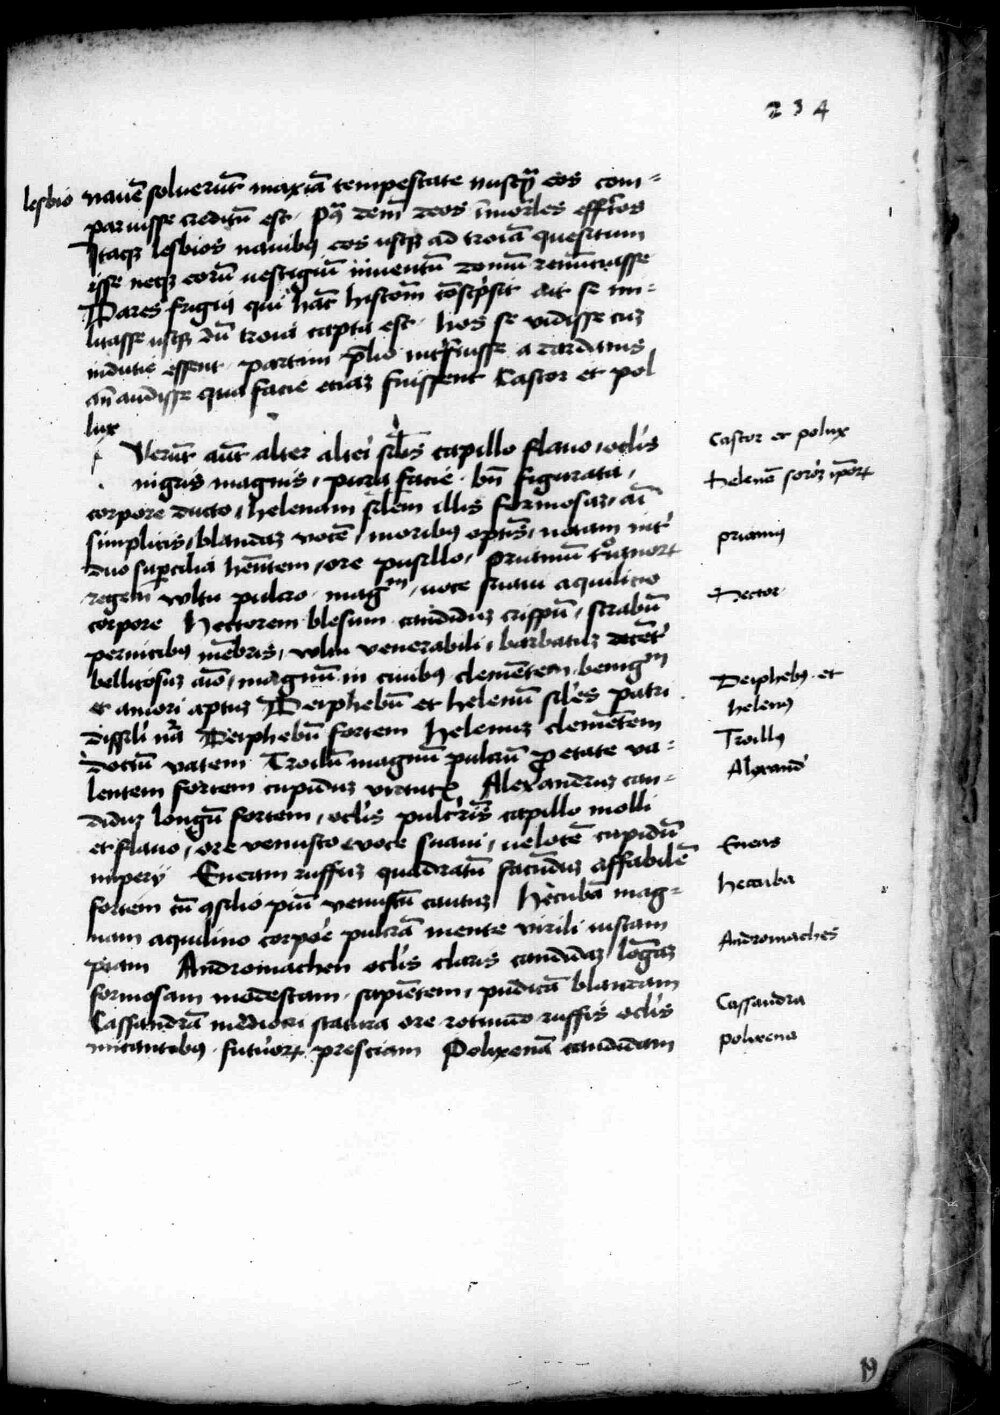 234
lesbio nauē soluerūt maxīa tempestate nusq̄ eos com-
paruisse creditū est. pꝰ dem̄ deos īmorles effctos
Itaqꝫ lesbios nauibꝰ eos usqꝫ ad troiā quesitum
isse neqꝫ eorū uestigiū inuentū domū renūciasse
Dares frigiꝰ qui hāc historiā cōscͥpsit ait se mi-
litasse usqꝫ dū troia capta est. hos se vidisse cuꝫ
inducie essent. partim plio intͥfuisse a dardanis
aū audisse qua facie etiaꝫ fuissent Castor et pol
lux
Verūt aūt alter alteͥ siłis capillo flauo, oclis
nigris magnis, pura facie. bn̄ figurata,
corpore ducto, helenam siłem illis formosaꝫ, aī
simplicis, blandaꝫ vocē, moribꝰ optīs, notam intͥ
duo supercilia hn̄tem, ore pusillo, priamū troianoꝝ
regem vultu pulcro. magᵐ, uoce suaui aquilino
corpore Hectorem blesum candiduꝫ crispū, strabū
pernicibꝰ mēbris, vltu venerabili, barbatuꝫ decētͥ
bellicosuꝫ aīo, magnū in ciuibꝰ clemētem, benigᵐ
et amori aptuꝫ Deiphebū et helenū siles patri
dissili nͣ Deiphebū fortem Helenuꝫ clemētem
doctū vatem Troilū magnū pulcrū p etate va-
lentem fortem cupiduꝫ virtutꝭ Alexandruꝫ can-
diduꝫ longū fortem, oclis pulcͥrīs capillo molli
et flauo, ore venusto & voce suaui, uelocē cupidū
impery Eneam ruffuꝫ quadratū facūduꝫ affabilē
fortem cū ꝯsilio piū venustū cautuꝫ Hecubā mag-
nam aquilino corpoͤe pulcrā mente virili iustam
piam Andromachen oclis claris candidaꝫ lōgaꝫ
formosam modestam, sapiētem, pudicā blandam
Cassandrā mediocri statura ore rotundo ruffis oclis
micantibꝰ. futuroꝝ presciam Polixenā candidam
Castor et polux
Helenē soroꝫ ipoꝝ
priamus
Hector.
Deiphebꝰ et
helenꝰ
Troillꝰ
Alexand
Eneas
heccuba
Andromaches
Cassandra
polixena
19